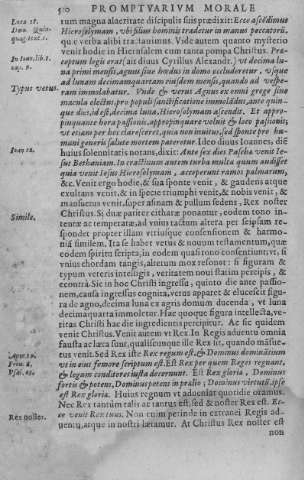 510 PROMPTVARIVM MORALE
Luca 18.
rum magna alacritate discipulis suis prædixit: Ecce ascēdimus
Hierosolymam, vbi filius hominis tradetur in manus peccatorũ,
quæ verba alibi tractauimus. Vide autem quanto mysterio
venit hodie in Hierusalem cum tanta pompa Christus. Præ
In Ioan. lib. 1. cap. 8.
ceptum legis erat (ait diuus Cyrillus Alexand.) vt decima lu
na primi mensis, agnus siue hædus in domo occluderetur, vsque
ad lunam decimamquartam eiusdem mensis, quando ad vespe-
Typus vetus.
ram immolabatur. Vnde & verus Agnus ex omni grege sine
macula electus, pro populi sanctificatione immolādus, ante quin-
que dies, id est, decima luna, Hierosolymam ascendit. Et appro-
pinquante hora passionis, appropinquare voluit & loco passionis,
vt etiam per hoc claresceret, quia non inuitus, sed sponte pro hu-
mani generis salute mortem pateretur. Ideo diuus Ioannes, de
Ioan. 12.
huius solennitatis norans, dixit: Ante sex dies Pascha venit Ie-
sus Bethaniam. In crastinum autem turba multa quum audisset
quia venit Iesus Hierosolymam, acceperunt ramos palmarum,
&c. Venit ergo hodie, & sua sponte venit, & gaudens atque
exultans venit, & in specie triumphi venit, & nobis venit, &
mansuetus venit, super asinam & pullum sedens, Rex noster
Simile.
Christus. Si duæ pariter citharæ ponantur, eodem tono in-
tentæ ac temperatæ, ad vnius tactum altera per seipsam re-
spondet propter illam vtriusque consensionem & harmo-
nią similem. Ita se habet vetus & nouum testamentum, quæ
eodem spiritu scripta, in eodem qualitore consentiunt: vt, si
vnius chordam tangis, alterum mox resonet: si figuram &
typum veteris intelligis, veritatem noui statim percipis, &
econtrà. Sic in hoc Christi ingressu, quinto die ante passio-
nem, causa ingressus cognita, vetus apparet & elucescit figu-
ra de agno, decima luna ex agris domum ducenda, vt luna
decimaquarta immoletur. Hæc quoque figura intellecta, ve-
ritas Christi hac die ingredientis percipitur. At sic quidem
venit Christus. Venit autem vt Rex. In Regis aduentu omnia
fausta ac læta sunt, qualiscunque ille Rex sit, quando mãsue-
Apoc. 19.
tus venit. Sed Rex iste Rex regum est, & Dominus dominātium
Prou. 8.
vt in eius femore scriptum est. Est Rex per quem Reges regnant,
Psal. 23.
& legum conditores iusta decernunt. Est Rex gloriæ, Dominus
fortis & potens, Dominus potens in prælio; Dominus virtutũ, ipse
est Rex gloriæ. Huius regnum vt adueniat quotidie oramus.
Nec Rex tantùm talis ac tantus est, sed & noster Rex est. Ec-
Rex noster.
ce venit Rex tuus. Non enim perinde in extranei Regis ad
uentu, atque in nostri lætamur. At Christus Rex noster est
non